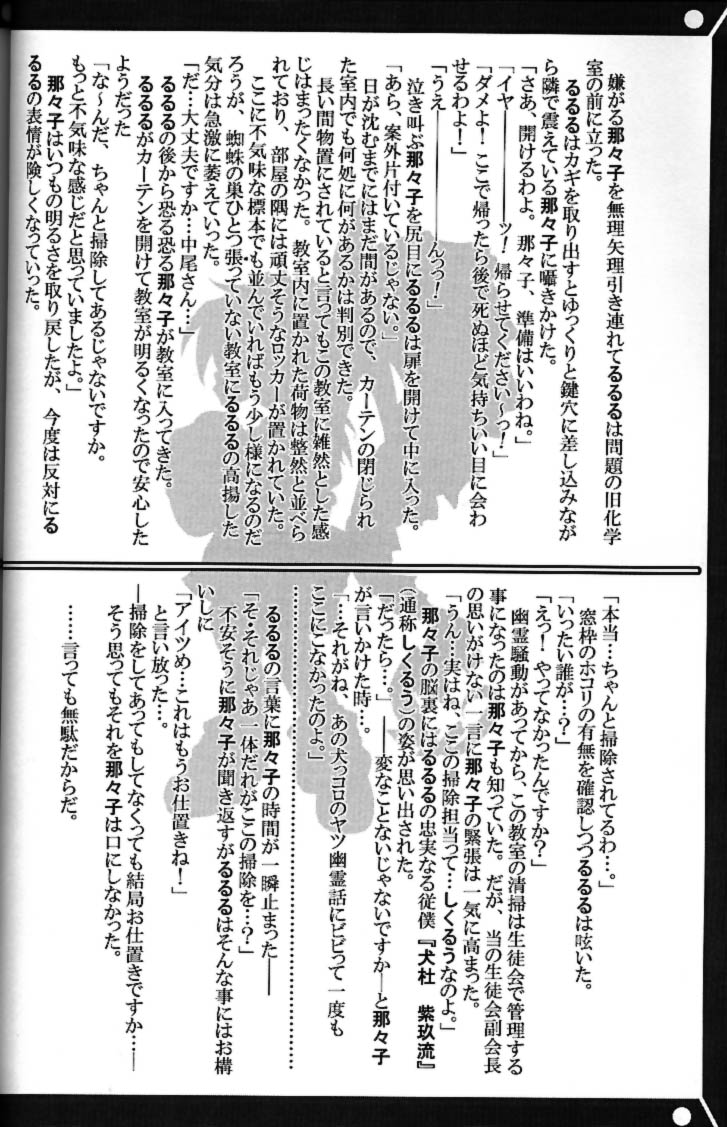 嫌がる那々子を無理矢理引き連れてるるるは問題の旧化学
室の前に立った。
るるるはカギを取り出すとゆっくりと鍵穴に差し込みなが
ら隣で震えている那々子に囁きかけた。
「さあ、開けるわよ。那々子、準備はいいわね。」
「イヤ━━━ッ！帰らせてください〜っ！」
「ダメよ！ここで帰ったら後で死ぬほど気持ちいい目に会わ
せるわよ！」
「うえ━━━━━んっっ！」
泣き叫ぶ那々子を尻目にるるるは扉を開けて中に入った。
「あら、案外片付いているじゃない。」
日が沈むまでにはまだ間があるので、カーテンの閉じられ
た室内でも何処に何があるかは判別できた。
長い間物置にされていると言ってもこの教室に雑然とした感
じはまったくなかった。教室内に置かれた荷物は整然と並べら
れており、部屋の隅には頑丈そうなロッカーが置かれていた。
ここに不気味な標本でも並んでいればもう少し様になるのだ
ろうが、蜘蛛の巣ひとつ張っていない教室にるるるの高揚した
気分は急激に萎えていった。
「だ…大丈夫ですか…中尾さん…」
るるるの後から恐る恐る那々子が教室に入ってきた。
るるるがカーテンを開けて教室が明るくなったので安心した
ようだった
「な〜んだ、ちゃんと掃除してあるじゃないですか。
もっと不気味な感じだと思っていましたよ。」
那々子はいつもの明るさを取り戻したが、今度は反対にる
るるの表情が険しくなっていった。
「本当…ちゃんと掃除されてるわ…。」
窓枠のホコリの有無を確認しつつるるるは呟いた。
「いったい誰が…？」
「えっ！やってなかったんですか？」
幽霊騒動があってから、この教室の清掃は生徒会で管理する
事になったのは那々子も知っていた。だが、当の生徒会副会長
の思いがけない一言に那々子の緊張は一気に高まった。
「うん…実はね、ここの掃除担当って…しくるうなのよ。」
那々子の脳裏にはるるるの忠実なる従僕『犬杜　紫玖流』
（通称しくるう）の姿が思い出された。
「だったら…。」━━変なことないじゃないですか━と那々子
が言いかけた時…。
「…それがね、あの犬っコロのヤツ幽霊話にビビって一度も
ここにこなかったのよ。」
………………………………………………………………
るるるの言葉に那々子の時間が一瞬止まった━━
「そ・それじゃあ一体だれがここの掃除を…？」
不安そうに那々子が聞き返すがるるるはそんな事にはお構
いしに
「アイツめ…これはもうお仕置きね！」
と言い放った…。
━掃除をしてあってもしてなくっても結局お仕置きですか━━
そう思ってもそれを那々子は口にしなかった。
……言っても無駄だからだ。